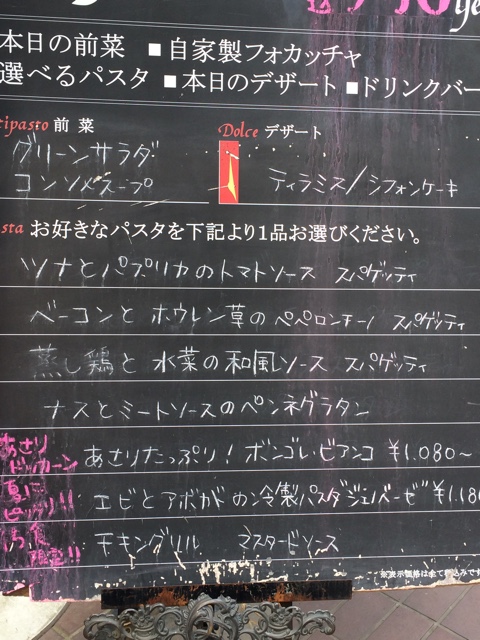 本日の前菜 ■自家製フォカッチャ
選べるパスタ ■本日のデザート ■ドリンクバー
tipasto 前菜
Dolce デザート
グリーンサラダ
コンソメスープ
ティラミス/シフォンケーキ
sta お好きなパスタを下記より1品お選びください。
ツナとパプリカのトマトソース スパゲッティ
ベーコンと ホウレン草の ペペロンチーノ スパゲッティ
蒸し鶏と 水菜の和風ソース スパゲッティ
ナスとミートソースのペンネグラタン
あさり ドッカーン
あさりたっぷり! ボンゴレ・ビアンコ ¥1.080~
夏に ピッタリ!!
エビとアボカドの冷製パスタ ジェノベーゼ ¥1.180
限定!!
チキングリル マスタードソース
※表示価格は全て税込みです